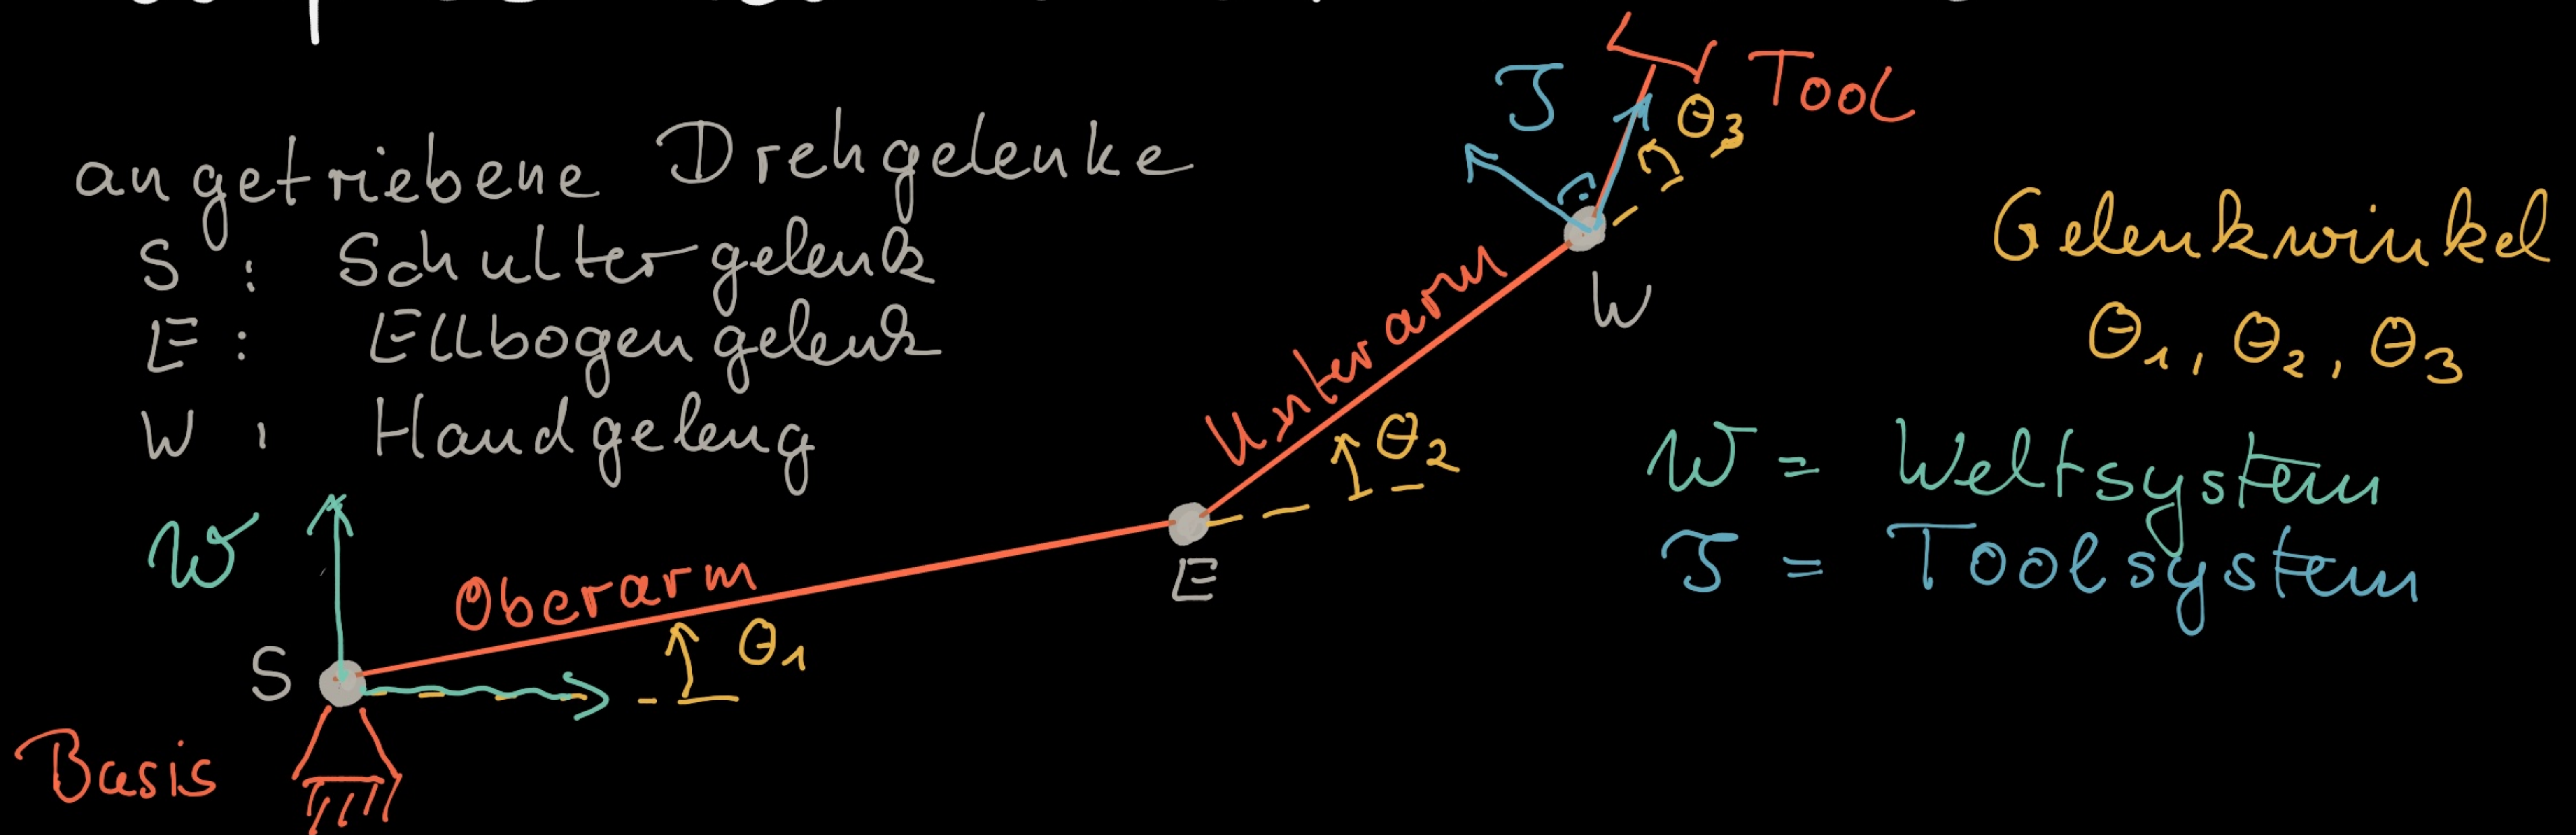 angetriebene Drehgelenke
S : Schultergelenk
E : Ellbogengelenk
W : Handgeleng
W
S
Basis
Oberarm
Θ1
E
Unterarm
Θ2
W
T
Θ3
Tool
Gelenkwinkel
Θ1, Θ2, Θ3
W = Weltsystem
T = Toolsystem